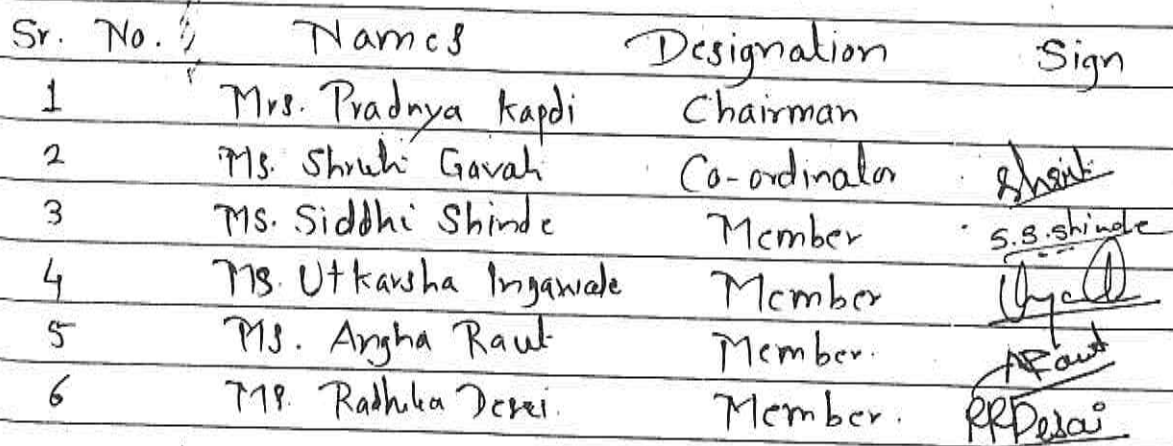 Sr. No. Names Designation Sign
1 Mrs. Pradnya Kapdi Chairman
2 Ms. Shruti Gavali Co-ordinator Shruti
3 Ms. Siddhi Shinde Member S.S.Shinde
4 Ms. Utkarsha Ingawale Member
5 Ms. Angha Raut Member. ARaut
6 Ms. Radhika Desai. Member. RRDesai